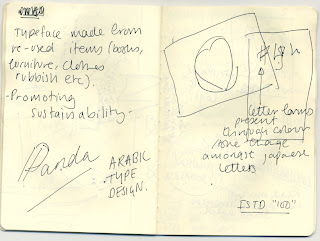 Typeface made from
re-used items (books,
furniture, clothes
rubbish etc).
- Promoting
sustainability.
Panda
ARABIC
TYPE
DESIGN.
letter forms
present
through colour
one image
amongst japanese
letters
ISTD "100"